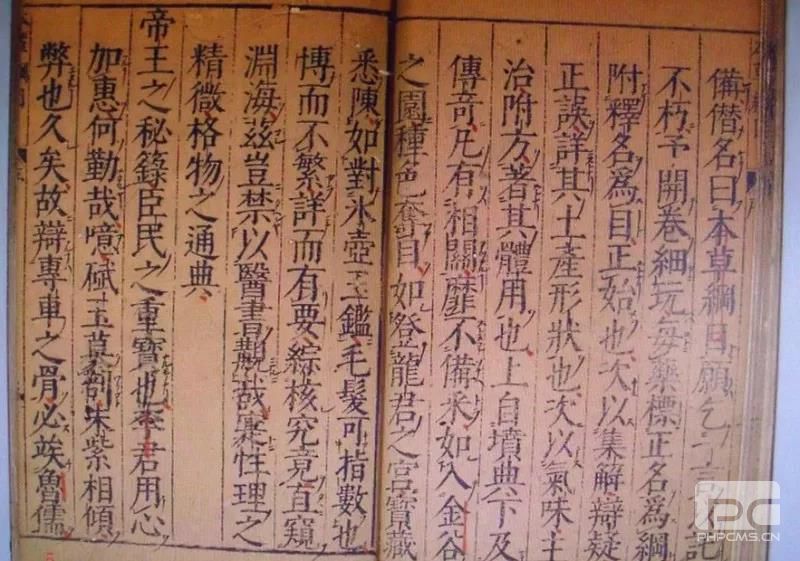 備僭名曰本草綱目願乞
不朽予開卷細玩每藥標正名爲綱
附釋名爲目正始也次以集解辯疑
正誤詳其土產形狀也次以氣味主
治附方著其體用也上自墳典下及
傳奇凡有相關靡不備采如入金谷
之園種色奪目如登龍君之宮寶藏
悉陳如對氷壺玉鑑毛髮可指數也
博而不繁詳而有要綜核究竟直窺
淵海茲豈禁以醫書覯哉寔性理之
精微格物之通典
帝王之秘錄臣民之重寶也李君用心
加惠何勤哉噫碔玉莫剖朱紫相傾
弊也久矣故辯專車之骨必竢魯儒
PC
PHPCMS.CN